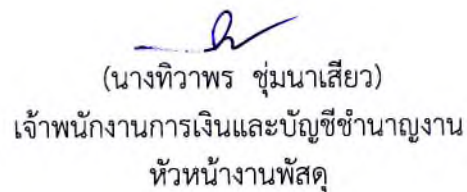 (นางทิวาพร ชุ่มนาเสียว)
เจ้าพนักงานการเงินและบัญชีชำนาญงาน
หัวหน้างานพัสดุ